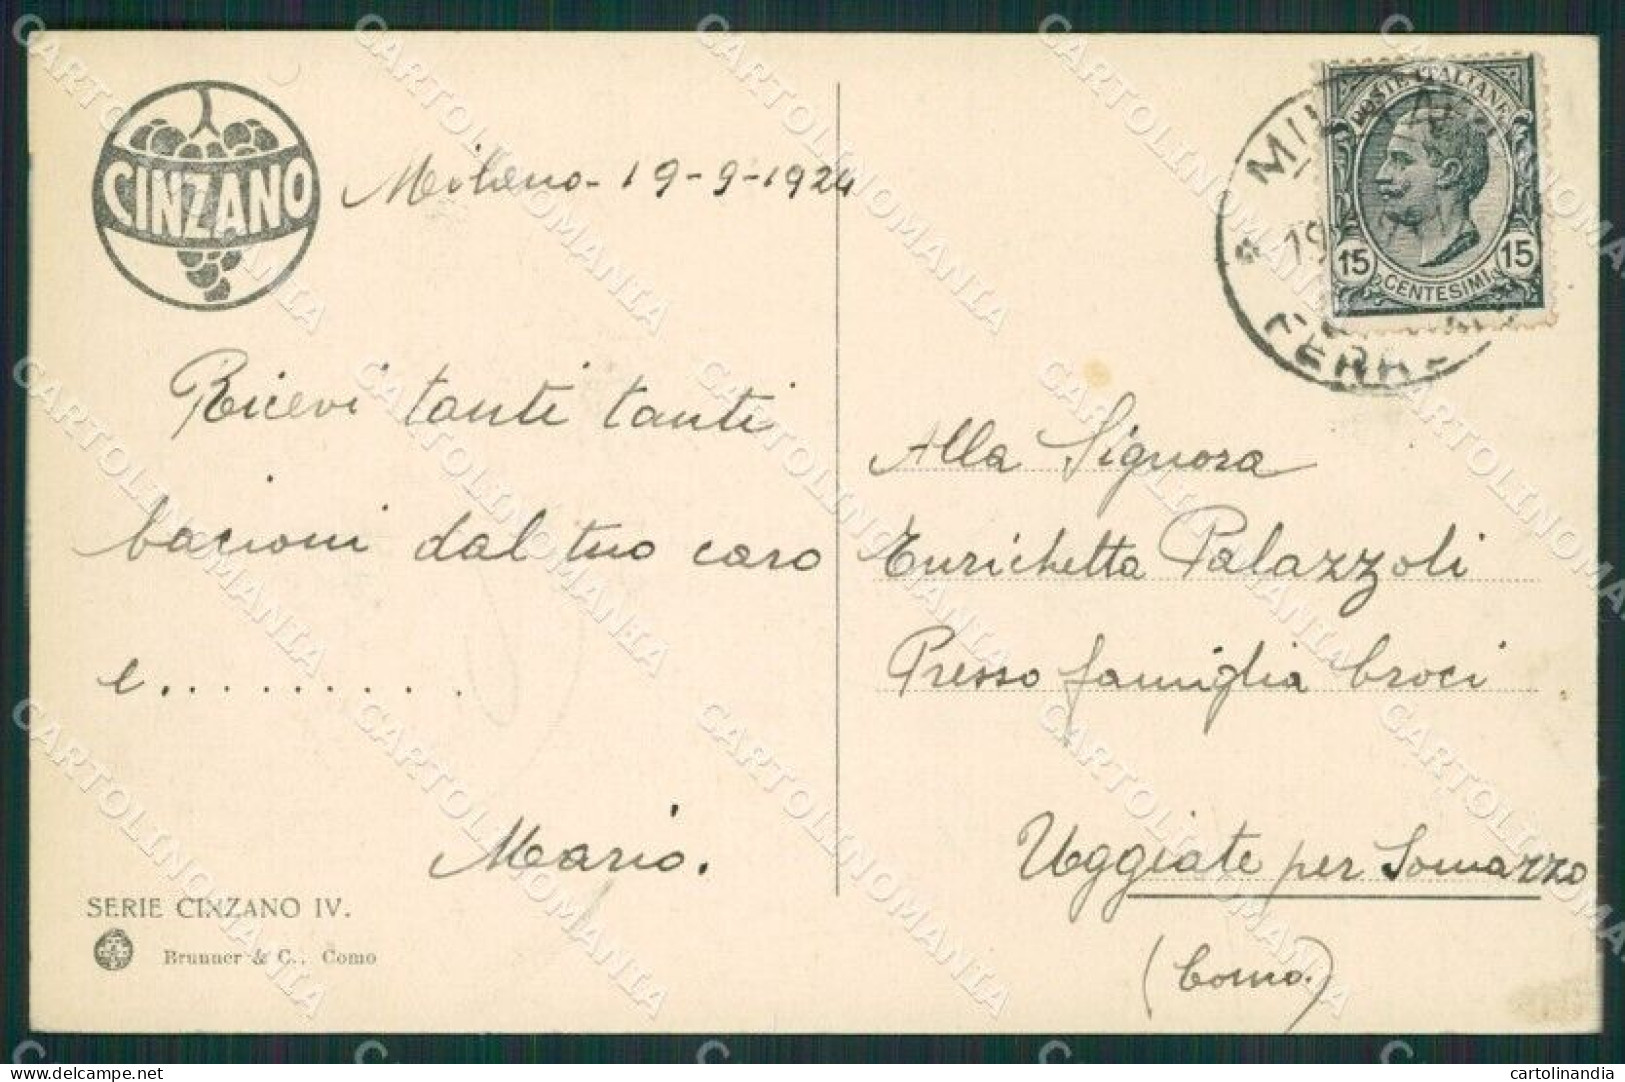 CINZANO
Milano - 19-9-1924
Ricevi tanti tanti
bacioni dal tuo caro
e..........
Mario.
SERIE CINZANO IV.
Brunner & C., Como
POSTE ITALIANE
15 CENTESIMI 15
MILANO
19
FERR
Alla Signora
Enrichetta Palazzoli
Presso famiglia Croci
Uggiate per Somazzo
(Como.)
CARTOLINOMANIA
delcampe.net
cartolinandia